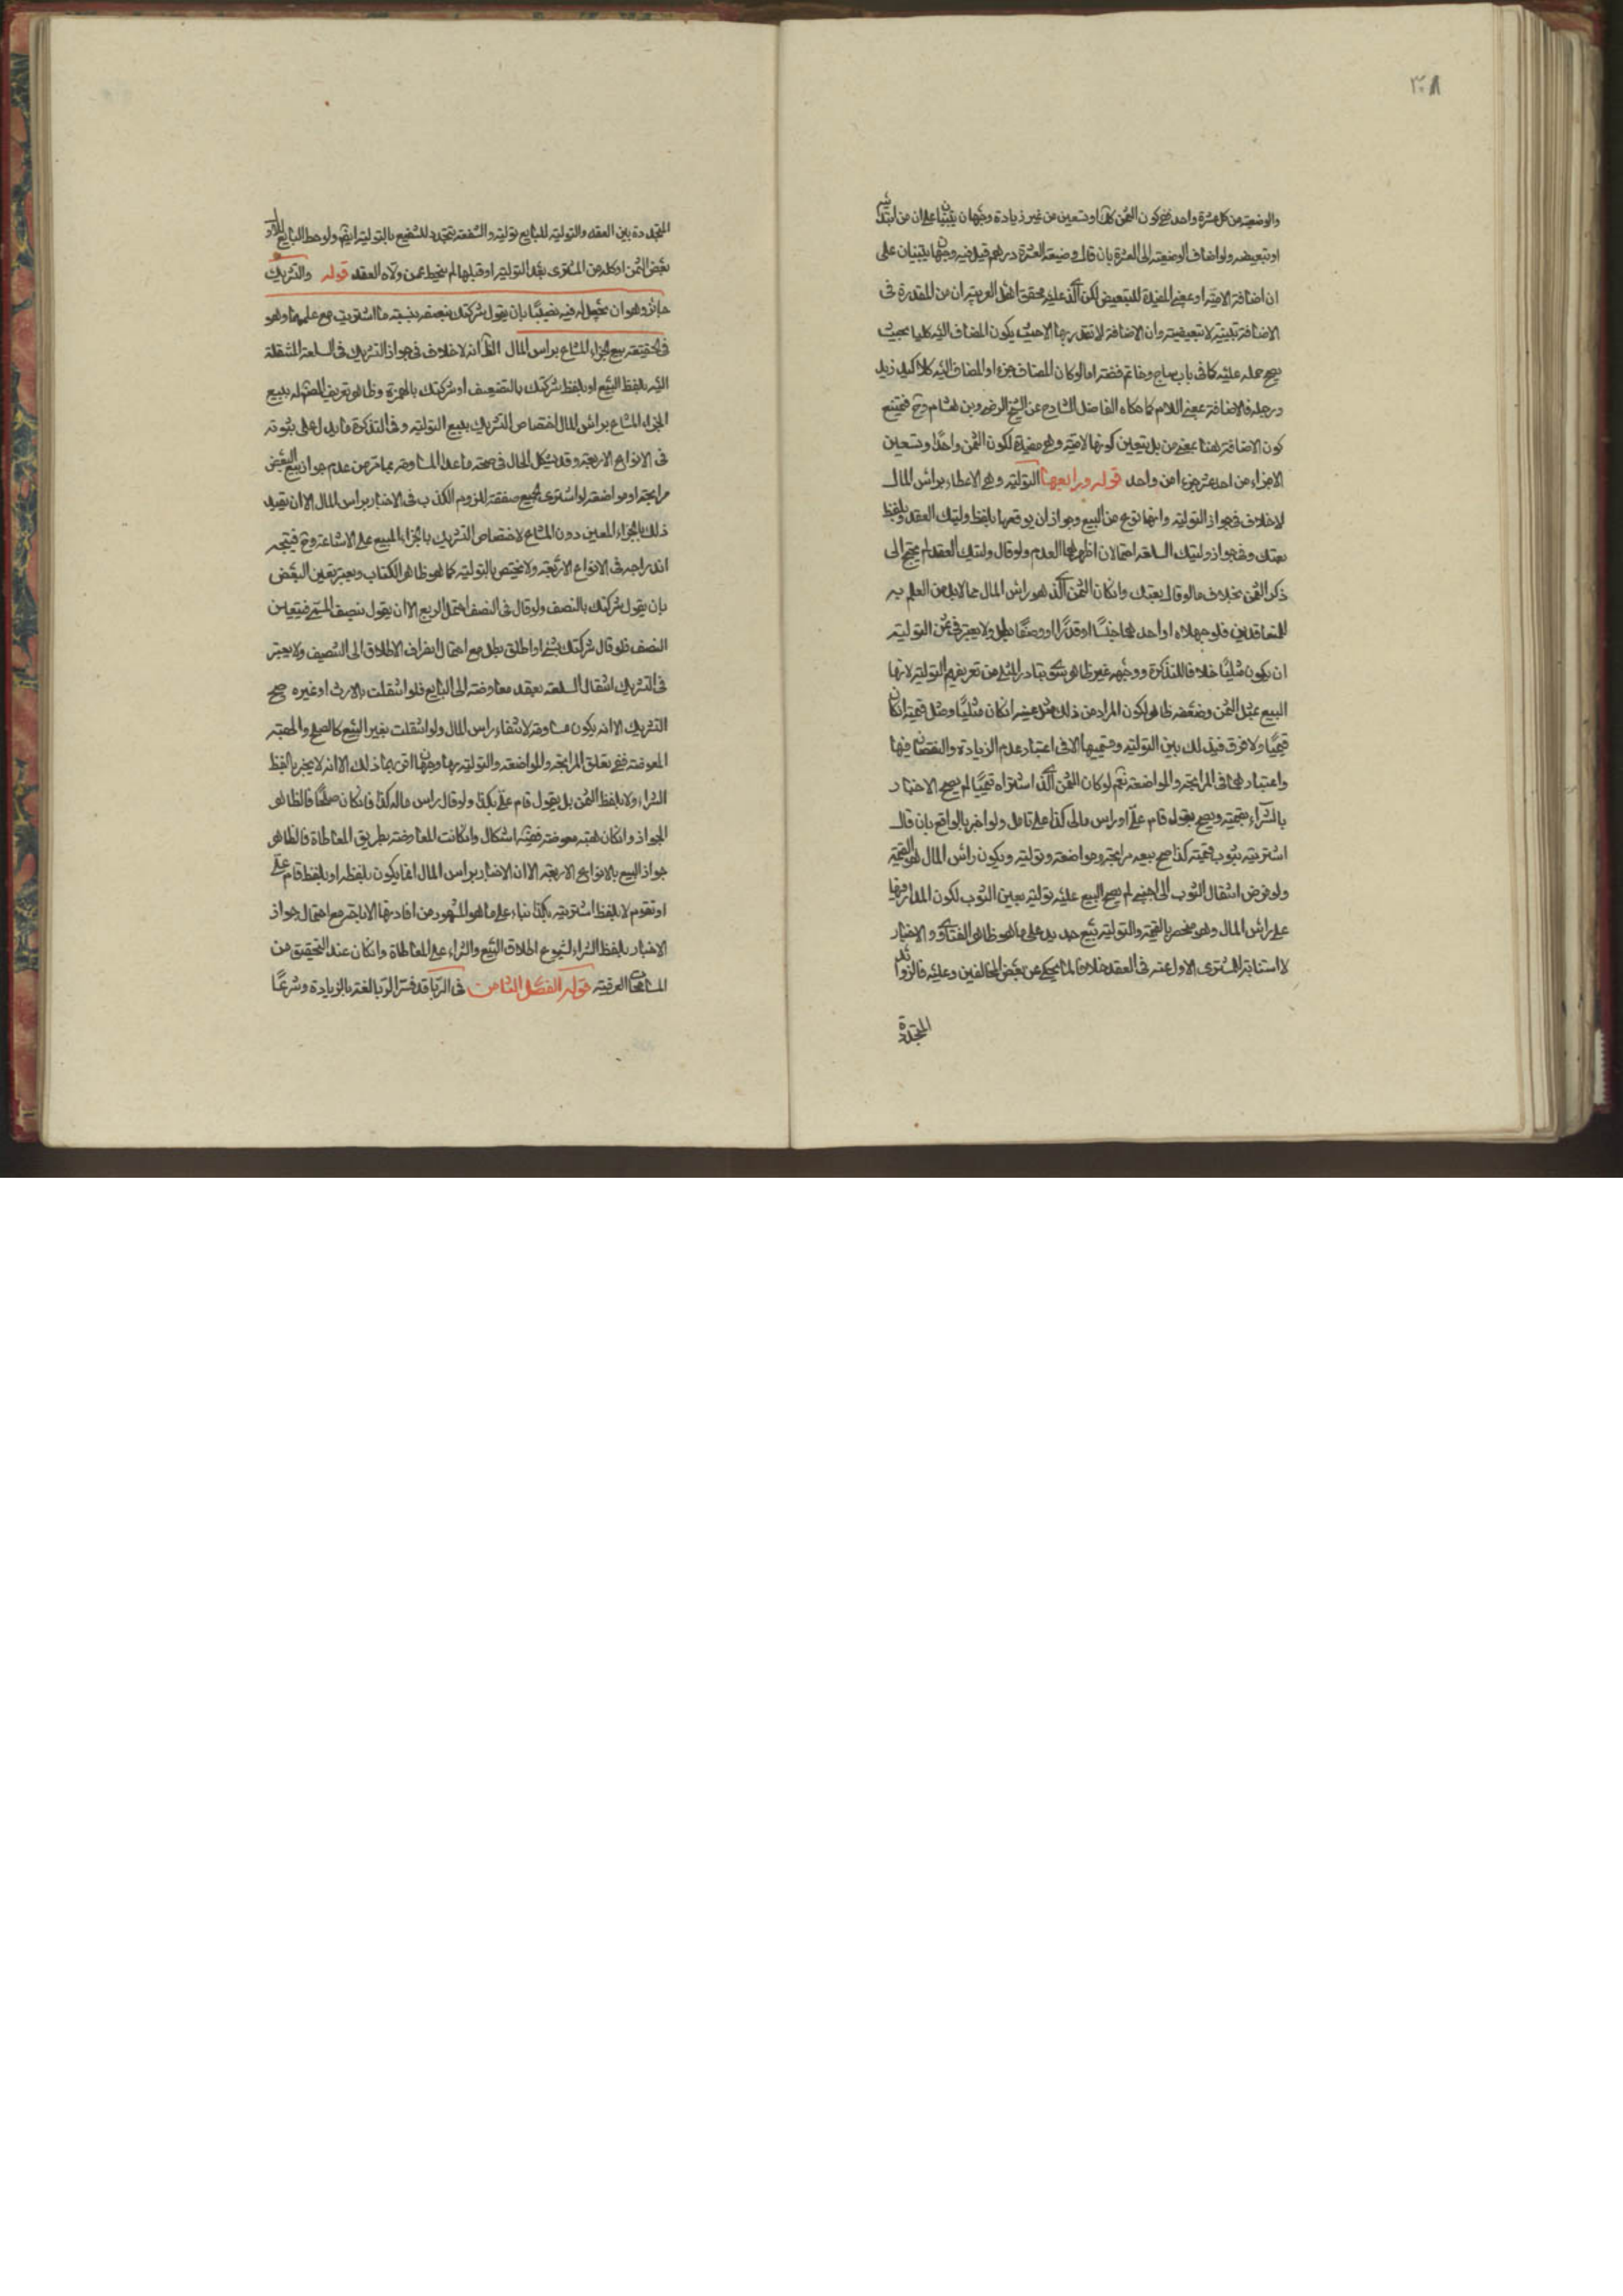 ٣٠٨
والوضيعة من كل عشرة واحد فيكون الثمن احد وتسعين من غير زيادة وجهان يبنيان على ان من
او تبعيضه ولو اضاف الوضيعة الى العشرة بان قال وضيعة العشرة درهم قيل فيه وجهان يبتنيان على
ان اضافة الامية او بمعنى المفيدة للتبعيض لكن الذي عليه محقق اهل العربية ان من المقدرة في
الاضافة تبيينية لا تبعيضية وان الاضافة لا تقدر بها الا حيث يكون المضاف اليه كليا بحيث
يصح حمله عليه كما في باب ساج وخاتم فضة اما لو كان المضاف جزء او المضاف اليه كلا كيد زيد
ورجله فالاضافة بمعنى اللام كما حكاه الفاضل الشارح عن الشيخ الرضي وبن هشام وح فيمتنع
كون الاضافة هنا بمعنى من بل يتعين كونها لامية وهي مفيدة لكون الثمن واحدا وتسعين
الا جزء من احد عشر جزء من واحد قوله ورابعها التولية وهي الاعطاء براس المال
لا خلاف في جواز التولية وانها نوع من البيع وجواز ان يوقعها بلفظ وليتك العقد وبلفظ
بعتك وفي جواز وليتك السلعة احتمالان اظهرهما العدم ولو قال وليتك العقد لم يحتج الى
ذكر الثمن بخلاف ما لو قال بعتك وان كان الثمن الذي هو راس المال مما لا بد من العلم به
للمتعاقدين فلو جهلاه او احدهما جنسا او قدرا او وصفا بطل ولا يعتبر في ثمن التولية
ان يكون مثليا خلافا للتذكرة ووجهه غير ظاهر سوى تبادر المثلي من تعريفهم التولية لانها
البيع بمثل الثمن وضعفه ظاهر لكون المراد من ذلك مثل عينه ان كان مثليا ومثل قيمته ان كان
قيميا ولا فرق في ذلك بين التولية وقسيميها الا في اعتبار عدم الزيادة والنقصان فيها
واعتبارهما في المرابحة والمواضعة نعم لو كان الثمن الذي اشتراه قيميا لم يصح الاخبار
بالشراء بقيمته ويصح بقوله قام علي او راس مالي كذا على تامل ولو اخبر بالواقع بان قال
اشتريته بثوب قيمته كذا صح بيعه مرابحة ومواضعة وتولية ويكون راس المال هو القيمة
ولو فرض انتقال الثوب الى اجنبي لم يصح البيع عليه تولية بعين الثوب لكون المدار فيها
على راس المال وهو منحصر بالقيمة والتولية بيع جديد على ما هو ظاهر الفتاوى والاخبار
لا استنابة المشتري الاول عنه في العقد خلافا لما يحكى عن بعض المخالفين وعليه فالزوائد
المتجددة
المتجددة بين العقد والتولية للبايع تولية والشفعة تتجدد للشفيع بالتولية ايضا ولو حط البايع الاول
بعض الثمن او كله عن المشتري بعد التولية او قبلها لم ينحط عمن ولاه العقد قوله والتشريك
جائز وهو ان يجعل له فيه نصيبا بان يقول شركتك بنصفه بنسبة ما اشتريت مع علمهما وهو
في الحقيقة بيع الجزء المشاع براس المال الظ انه لا خلاف في جواز التشريك في السلعة المنتقلة
اليه بلفظ البيع او بلفظ شركتك بالتضعيف او شركتك بالهمزة وظاهر تعريف المص له ببيع
الجزء المشاع براس المال اختصاص التشريك ببيع التولية وفي التذكرة ما يدل على ثبوته
في الانواع الاربعة وقد يشكل الحال في صحة ما عدا المساومة مما تر من عدم جواز بيع البعض
مرابحة او مواضعة لو اشترى الجميع صفقة للزوم الكذب في الاخبار براس المال الا ان يقيد
ذلك بالجزء المعين دون المشاع لاختصاص التشريك بالجزء المبيع على الاشاعة وح فيتجه
اندراجه في الانواع الاربعة ولا يختص بالتولية كما هو ظاهر الكتاب ويعتبر تعيين البعض
بان يقول شركتك بالنصف ولو قال في النصف احتمل الربع الا ان يقول بنصف الثمن فيتعين
النصف فلو قال شركتك بشيء او اطلق بطل مع احتمال انصراف الاطلاق الى التنصيف ولا يعتبر
في التشريك انتقال السلعة بعقد معاوضة الى البايع فلو انتقلت بالارث او غيره صح
التشريك الا انه يكون مساومة لانتفاء راس المال ولو انتقلت بغير البيع كالصلح والهبة
المعوضة ففي تعلق المرابحة والمواضعة والتولية بها وجهان اقربهما ذلك الا انه لا يخبر بلفظ
الشراء ولا بلفظ الثمن بل يقول قام علي بكذا ولو قال راس ماله كذا فان كان صلحا فالظاهر
الجواز وان كان هبة معوضة ففيه اشكال وان كانت المعاوضة بطريق المعاطاة فالظاهر
جواز البيع بالانواع الاربعة الا ان الاخبار براس المال انما يكون بلفظه او بلفظ قام علي
او تقوم لا بلفظ اشتريته بكذا بناء على ما هو المشهور من افادتها الاباحة مع احتمال جواز
الاخبار بلفظ الشراء لشيوع اطلاق البيع والشراء على المعاطاة وان كان عند التحقيق من
المسامحات العرفية قوله الفصل الثامن في الربا قد فسر الربا لغة بالزيادة وشرعا